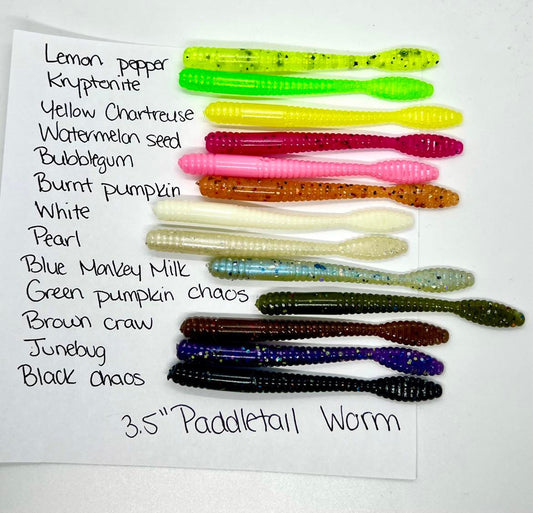 Lemon pepper
Kryptonite
Yellow Chartreuse
Watermelon seed
Bubblegum
Burnt pumpkin
White
Pearl
Blue Monkey Milk
Green pumpkin chaos
Brown craw
Junebug
Black chaos
3.5" Paddletail Worm